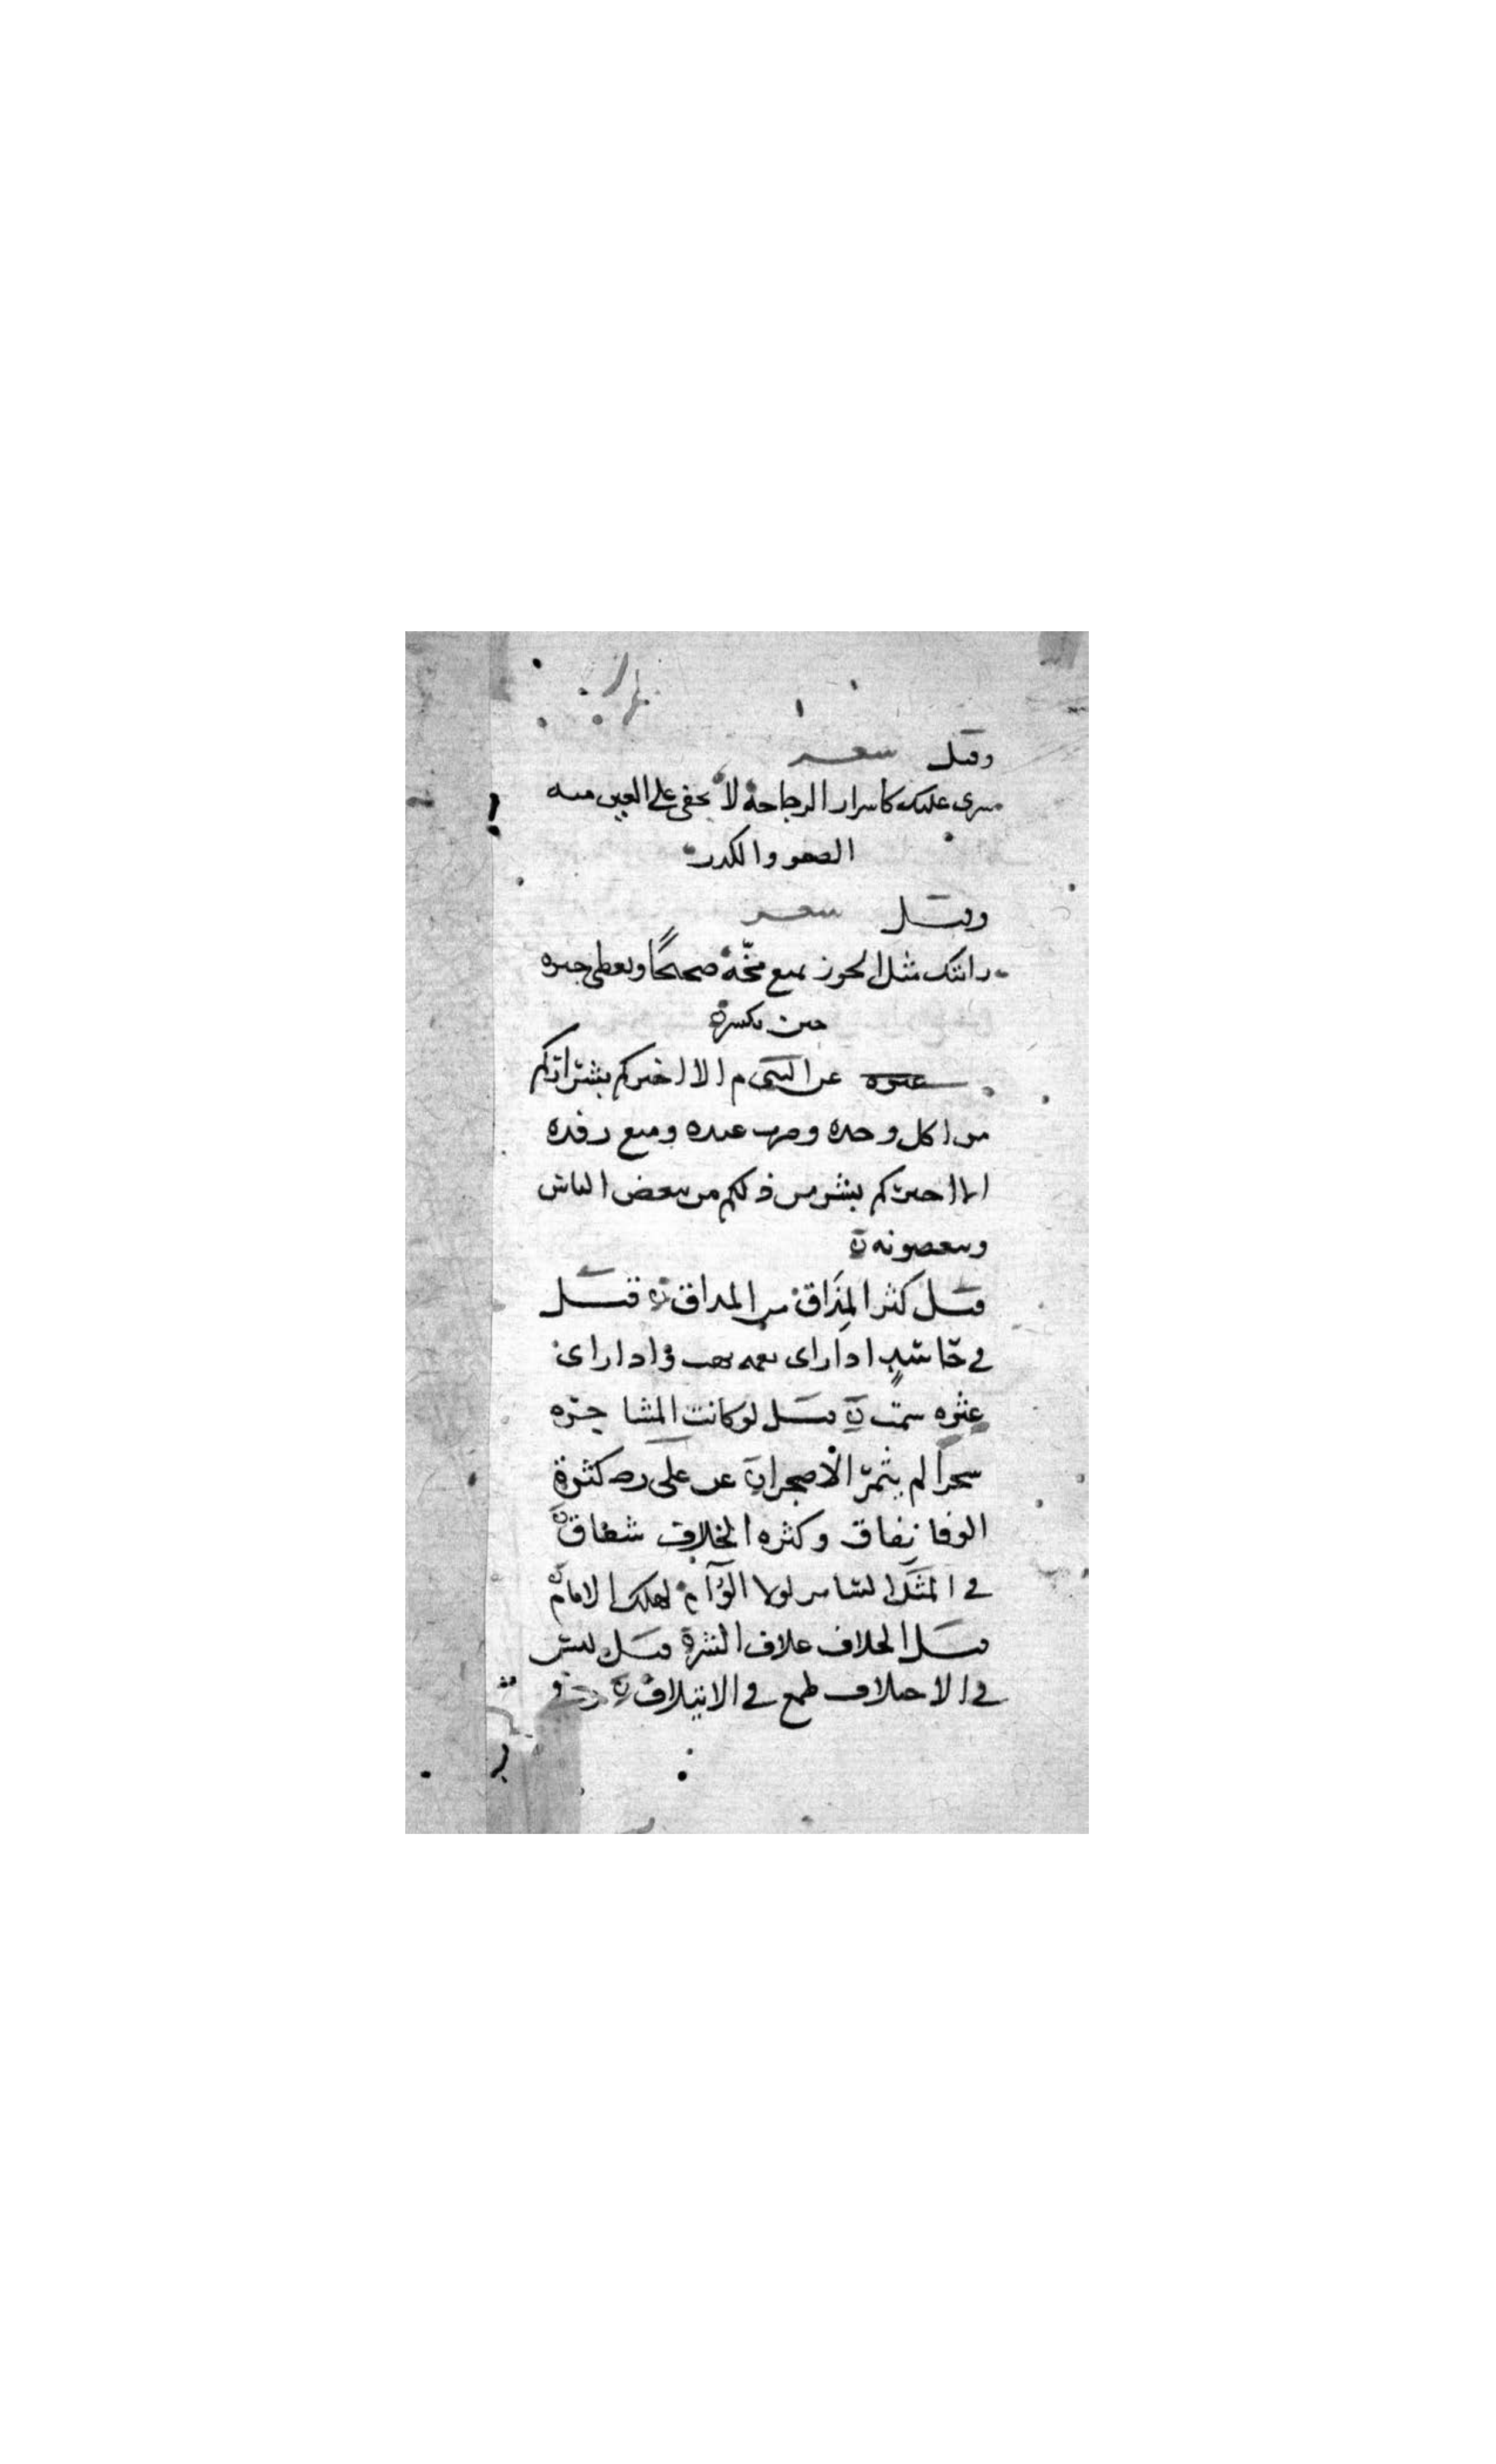 وقيل شعر
سرى عليك كاسرار الزجاجة لا يخفى على العين منه
الصفو والكدر
وقيل شعر
رايتك مثل الجوز يمنع مخّه صحيحًا ويعطي خيره
حين يكسر
غيره عن النبي م الا اخبركم بشراركم
من اكل وحده وضرب عبده ومنع رفده
الا اخبركم بشر من ذلكم من يبغض الناس
ويبغضونه
قيل كثر المِذاق من المداق قيل
في حاسد اذا راى نعمه بهت واذا راى
عثره شمت قيل لو كانت المشاجره
شجرا لم يثمر الا ضجرا عن على رضه كثرة
الوفا نفاق وكثره الخلاف شقاق
في المثل الساير لولا الوُآم لهلك الانام
قيل الخلاف غلاف الشر قيل ليس
في الاختلاف طمع في الايتلاف